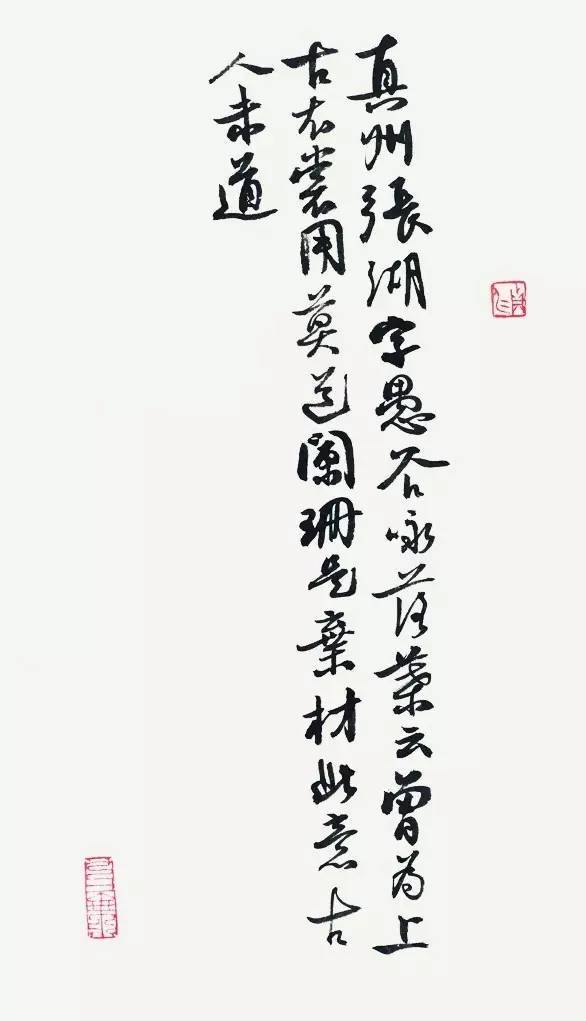 真州張湖字愚谷咏落葉云曾為上
古衣裳用莫道闌珊是棄材此意古
人未道